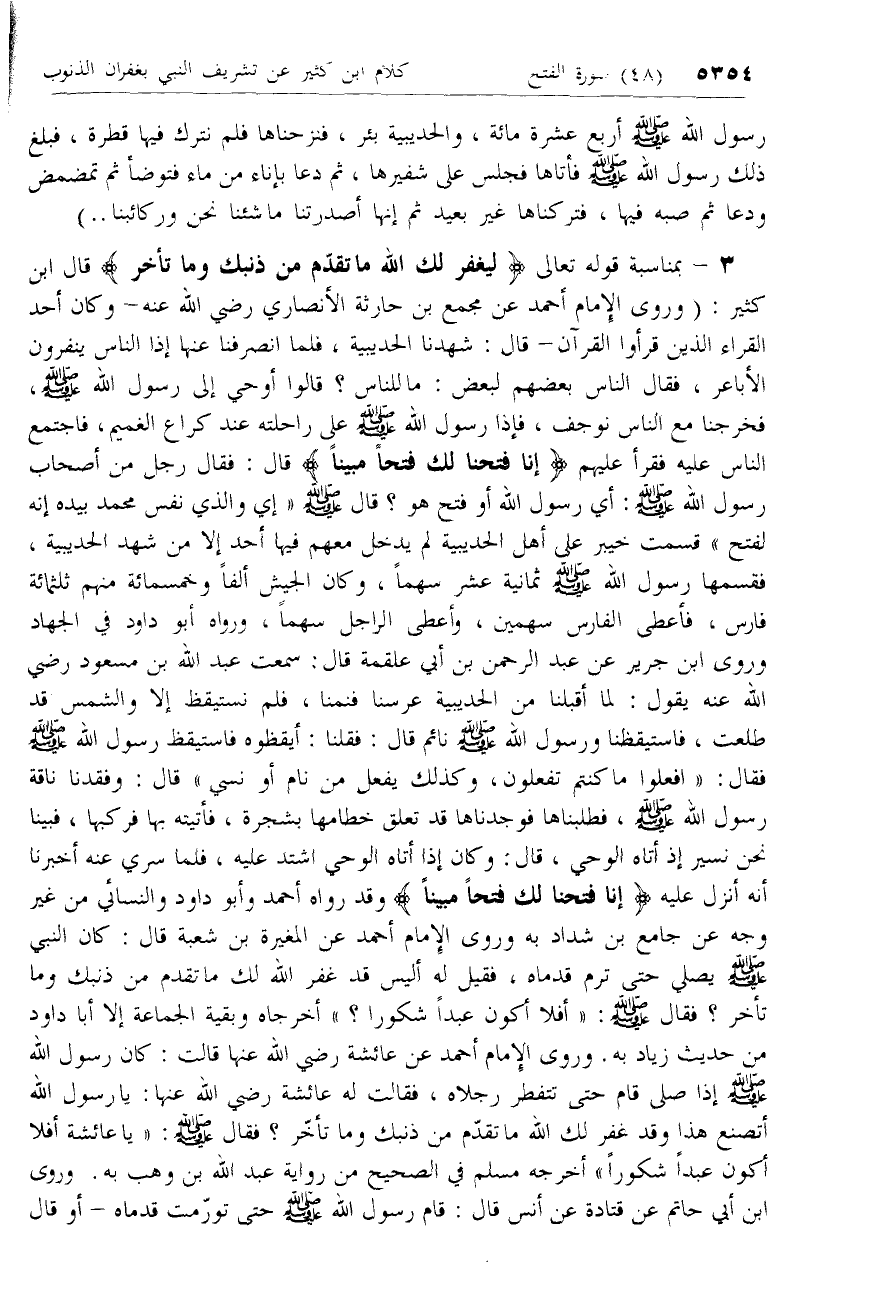 ٥٣٥٤ (٤٨) سورة الفتح كلام ابن كثير عن تشريف النبي بغفران الذنوب
رسول الله ﷺ أربع عشرة مائة ، والحديبية بئر ، فنزحناها فلم نترك فيها قطرة ، فبلغ
ذلك رسول الله ﷺ فأتاها فجلس على شفيرها ، ثم دعا بإناء من ماء فتوضأ ثم تمضمض
ودعا ثم صبه فيها ، فتركناها غير بعيد ثم إنها أصدرتنا ماشئنا نحن وركائبنا ..)
٣ – بمناسبة قوله تعالى ﴿ ليغفر لك الله ماتقدّم من ذنبك وما تأخر ﴾ قال ابن
كثير : ( وروى الإمام أحمد عن مجمع بن حارثة الأنصاري رضي الله عنه – وكان أحد
القراء الذين قرأوا القرآن – قال : شهدنا الحديبية ، فلما انصرفنا عنها إذا الناس ينفرون
الأباعر ، فقال الناس بعضهم لبعض : ماللناس ؟ قالوا أوحي إلى رسول الله ﷺ ،
فخرجنا مع الناس نوجف ، فإذا رسول الله ﷺ على راحلته عند كراع الغميم، فاجتمع
الناس عليه فقرأ عليهم ﴿ إنا فتحنا لك فتحاً مبيناً ﴾ قال : فقال رجل من أصحاب
رسول الله ﷺ : أي رسول الله أو فتح هو ؟ قال ﷺ « إي والذي نفس محمد بيده إنه
لفتح » قسمت خيبر على أهل الحديبية لم يدخل معهم فيها أحد إلا من شهد الحديبية ،
فقسمها رسول الله ﷺ ثمانية عشر سهماً ، وكان الجيش ألفاً وخمسمائة منهم ثلثمائة
فارس ، فأعطى الفارس سهمين ، وأعطى الراجل سهماً ، ورواه أبو داود في الجهاد
وروى ابن جرير عن عبد الرحمن بن أبي علقمة قال : سمعت عبد الله بن مسعود رضي
الله عنه يقول : لما أقبلنا من الحديبية عرسنا فنمنا ، فلم نستيقظ إلا والشمس قد
طلعت ، فاستيقظنا ورسول الله ﷺ نائم قال : فقلنا : أيقظوه فاستيقظ رسول الله ﷺ
فقال : « افعلوا ماكنتم تفعلون، وكذلك يفعل من نام أو نسي » قال : وفقدنا ناقة
رسول الله ﷺ ، فطلبناها فوجدناها قد تعلق خطامها بشجرة ، فأتيته بها فركبها ، فبينا
نحن نسير إذ أتاه الوحي ، قال : وكان إذا أتاه الوحي اشتد عليه ، فلما سري عنه أخبرنا
أنه أنزل عليه ﴿ إنا فتحنا لك فتحاً مبيناً ﴾ وقد رواه أحمد وأبو داود والنسائي من غير
وجه عن جامع بن شداد به وروى الإمام أحمد عن المغيرة بن شعبة قال : كان النبي
ﷺ يصلي حتى ترم قدماه ، فقيل له أليس قد غفر الله لك ماتقدم من ذنبك وما
تأخر ؟ فقال ﷺ : « أفلا أكون عبداً شكورا ؟ » أخرجاه وبقية الجماعة إلا أبا داود
من حديث زياد به . وروى الإمام أحمد عن عائشة رضي الله عنها قالت : كان رسول الله
ﷺ إذا صلى قام حتى تتفطر رجلاه ، فقالت له عائشة رضي الله عنها : يارسول الله
أتصنع هذا وقد غفر لك الله ماتقدّم من ذنبك وما تأخّر ؟ فقال ﷺ : « ياعائشة أفلا
أكون عبداً شكوراً » أخرجه مسلم في الصحيح من رواية عبد الله بن وهب به . وروى
ابن أبي حاتم عن قتادة عن أنس قال : قام رسول الله ﷺ حتى تورّمت قدماه – أو قال